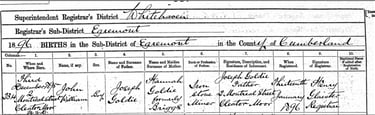 Superintendent Registrar's District Whitehaven
Registrar's District Egremont
1896 BIRTHS in the Sub-District of Egremont in the County of Cumberland
Columns:— 1. 2. 3. 4. 5. 6. 7. 8. 9. 10.
No. When and Where Born. Name, if any. Sex. Name and Surname of Father. Name and Maiden Surname of Mother. Rank or Profession of Father. Signature, Description, and Residence of Informant. When Registered. Signature of Registrar.
Third December 1895 2 Montreal Street Cleator Moor
John
Boy
Joseph Goldie
Hannah Goldie formerly Briggs
Iron Stone Miner
Joseph Goldie Father 2 Montreal Street Cleator Moor
Thirteenth January 1896
Henry Registrar